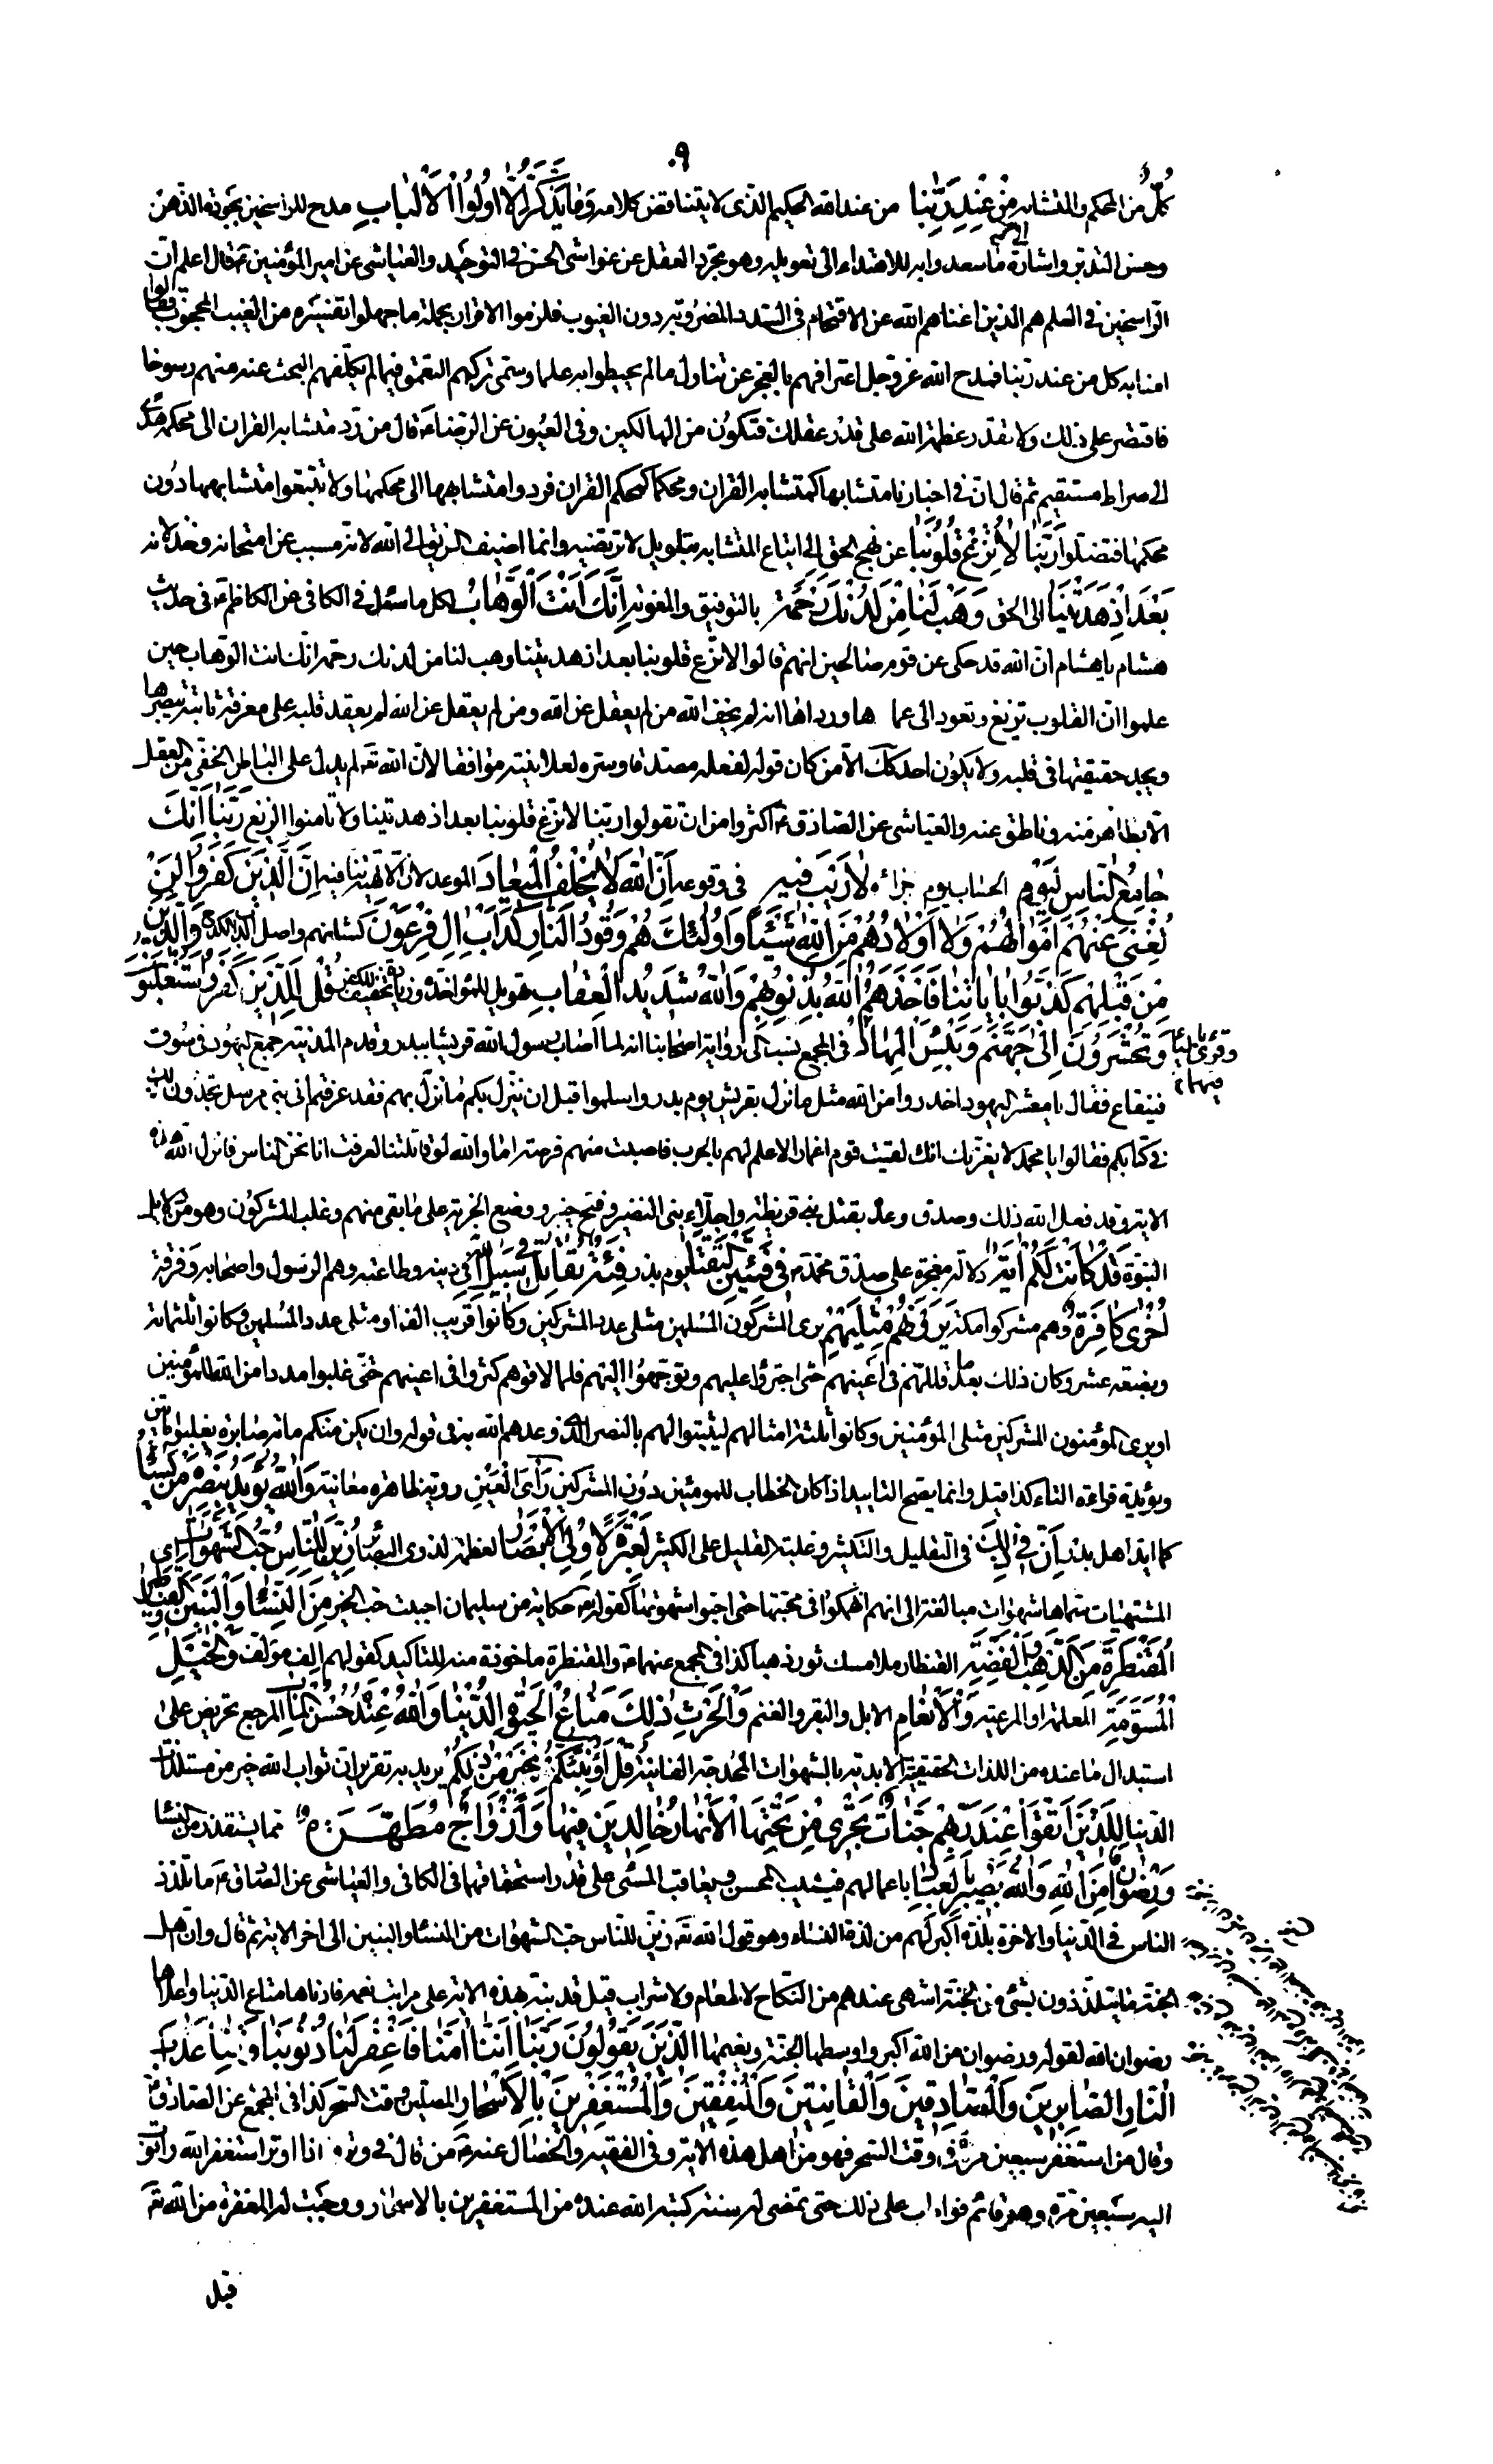 ٩٠
كُلٌّ من المحكم والمتشابه مِنْ عِنْدِ رَبِّنَا من عند الله الحكيم الذى لا يتناقض كلامه وَمَا يَذَّكَّرُ إِلَّا أُولُوا الْأَلْبَابِ مدح للراسخين بجودة الذهن
وحسن التدبر واشارة الى ما استعدوا به للاهتداء الى تعويله وهو تجرد العقل عن غواشى الحس فى التوحيد والعياشى عن امير المؤمنين ع قال اعلم ان
الراسخين فى العلم هم الذين اغناهم الله عن الاقتحام فى السدد المضروبة دون الغيوب فلزموا الاقرار بجملة ما جهلوا تفسيره من الغيب المحجوب فقالوا
امنا به كل من عند ربنا فمدح الله عز وجل اعترافهم بالعجز عن تناول ما لم يحيطوا به علما وسمى تركهم التعمق فيما لم يكلفهم البحث عنه منهم رسوخا
فاقتصر على ذلك ولا تقدر عظمة الله على قدر عقلك فتكون من الهالكين وفى العيون عن الرضا ع قال من رد متشابه القران الى محكمه هدى
الى صراط مستقيم ثم قال ان فى اخبارنا متشابها كمتشابه القران ومحكما كمحكم القران فردوا متشابهها الى محكمها ولا تتبعوا متشابهها دون
محكمها فتضلوا رَبَّنَا لَا تُزِغْ قُلُوبَنَا عن نهج الحق الى اتباع المتشابه بتاويل لا ترتضيه وانما اضيف الزيغ الى الله لانه مسبب عن امتحانه وخذلانه
بَعْدَ إِذْ هَدَيْتَنَا الى الحق وَهَبْ لَنَا مِنْ لَدُنْكَ رَحْمَةً بالتوفيق والمعونة إِنَّكَ أَنْتَ الْوَهَّابُ لكل ما سئل فى الكافى عن الكاظم ع فى حديث
هشام يا هشام ان الله قد حكى عن قوم صالحين انهم قالوا لا تزغ قلوبنا بعد اذ هديتنا وهب لنا من لدنك رحمة انك انت الوهاب حين
علموا ان القلوب تزيغ وتعود الى عماها ورداها انه لم يخف الله من لم يعقل عن الله ومن لم يعقل عن الله لم يعقد قلبه على معرفة ثابتة يبصرها
ويجد حقيقتها فى قلبه ولا يكون احد كك الا من كان قوله لفعله مصدقا وسره لعلانيته موافقا لان الله تع لم يدل على الباطن الخفى من العقل
الا بظاهر منه وناطق عنه والعياشى عن الصادق ع اكثروا من ان تقولوا ربنا لا تزغ قلوبنا بعد اذ هديتنا ولا تامنوا الزيغ رَبَّنَا إِنَّكَ
جَامِعُ النَّاسِ لِيَوْمٍ الحساب يوم جزاء لَا رَيْبَ فِيهِ فى وقوعه إِنَّ اللَّهَ لَا يُخْلِفُ الْمِيعَادَ الموعد لان الالهية تنافيه إِنَّ الَّذِينَ كَفَرُوا لَنْ
تُغْنِيَ عَنْهُمْ أَمْوَالُهُمْ وَلَا أَوْلَادُهُمْ مِنَ اللَّهِ شَيْئًا وَأُولَئِكَ هُمْ وَقُودُ النَّارِ كَدَأْبِ آلِ فِرْعَوْنَ كشانهم واصل الداب الكد وَالَّذِينَ
مِنْ قَبْلِهِمْ كَذَّبُوا بِآيَاتِنَا فَأَخَذَهُمُ اللَّهُ بِذُنُوبِهِمْ وَاللَّهُ شَدِيدُ الْعِقَابِ تهويل للمؤاخذة وزيادة تخفيف للكفر قُلْ لِلَّذِينَ كَفَرُوا سَتُغْلَبُونَ
وَتُحْشَرُونَ إِلَى جَهَنَّمَ وَبِئْسَ الْمِهَادُ فى المجمع نسب الى رواية اصحابنا انه لما اصاب رسول الله قريشا ببدر وقدم المدينة جمع اليهود فى سوق
وقرئ بالياء فيهما
قينقاع فقال يا معشر اليهود احذروا من الله مثل ما نزل بقريش يوم بدر واسلموا قبل ان ينزل بكم ما نزل بهم فقد عرفتم انى نبى مرسل تجدون ذلك
فى كتابكم فقالوا يا محمد لا يغرنك انك لقيت قوم اغمار لا علم لهم بالحرب فاصبت منهم فرصة اما والله لو قاتلتنا لعرفت انا نحن الناس فانزل الله هذه
الاية وقد فعل الله ذلك وصدق وعده بقتل بنى قريظة واجلاء بنى النضير وفتح خيبر ووضع الجزية على ما بقى منهم وغلب المشركون وهو من دلائل
النبوة قَدْ كَانَتْ لَكُمْ آيَةٌ دلالة معجزة على صدق محمد ص فِي فِئَتَيْنِ الْتَقَتَا يوم بدر فِئَةٌ تُقَاتِلُ فِي سَبِيلِ اللَّهِ فى دينه وطاعته وهم الرسول واصحابه وفرقة
أُخْرَى كَافِرَةٌ وهم مشركوا مكة يَرَوْنَهُمْ مِثْلَيْهِمْ يرى المشركون المسلمين مثلى عدد المشركين وكانوا قريب الف او مثلى عدد المسلمين وكانوا ثلثمائة
وبضعة عشر وكان ذلك بعد ما قللهم فى اعينهم حتى اجترؤا عليهم وتوجهوا اليهم فلما لاقوهم كثروا فى اعينهم حتى غلبوا مددا من الله للمؤمنين
او يرى المؤمنون المشركين مثلى المؤمنين وكانوا ثلثة امثالهم ليثبتوا لهم بالنصر الذى وعدهم الله به فى قوله وان يكن منكم مائة صابرة يغلبوا مائتين
ويؤيده قراءة التاء كذا قيل وانما يصح التاييد اذا كان الخطاب للمومنين دون المشركين رَأْيَ الْعَيْنِ روية ظاهرة معاينة وَاللَّهُ يُؤَيِّدُ بِنَصْرِهِ مَنْ يَشَاءُ
كما ايد اهل بدر إِنَّ فِي ذَلِكَ فى التقليل والتكثير وغلبة القليل على الكثير لَعِبْرَةً لِأُولِي الْأَبْصَارِ لعظة لذوى البصائر زُيِّنَ لِلنَّاسِ حُبُّ الشَّهَوَاتِ اى
المشتهيات سماها شهوات مبالغة الى انهم انهمكوا فى محبتها حتى احبوا شهوتها كقوله تع حكاية من سليمان احببت حب الخير مِنَ النِّسَاءِ وَالْبَنِينَ وَالْقَنَاطِيرِ
الْمُقَنْطَرَةِ مِنَ الذَّهَبِ وَالْفِضَّةِ القنطار ملا مسك ثور ذهبا كذا فى المجمع عنهما ع والمقنطرة ماخوذة منه للتاكيد كقولهم الف مؤلف وَالْخَيْلِ
الْمُسَوَّمَةِ المعلمة او المرعية وَالْأَنْعَامِ الابل والبقر والغنم وَالْحَرْثِ ذَلِكَ مَتَاعُ الْحَيَوةِ الدُّنْيَا وَاللَّهُ عِنْدَهُ حُسْنُ الْمَآبِ المرجع تحريض على
استبدال ما عنده من اللذات الحقيقية الابدية بالشهوات المخدجة الفانية قُلْ أَؤُنَبِّئُكُمْ بِخَيْرٍ مِنْ ذَلِكُمْ يريد به تقرير ان ثواب الله خير من مستلذات
الدنيا لِلَّذِينَ اتَّقَوْا عِنْدَ رَبِّهِمْ جَنَّاتٌ تَجْرِي مِنْ تَحْتِهَا الْأَنْهَارُ خَالِدِينَ فِيهَا وَأَزْوَاجٌ مُطَهَّرَةٌ مما يستقذر من النساء
وَرِضْوَانٌ مِنَ اللَّهِ وَاللَّهُ بَصِيرٌ بِالْعِبَادِ باعمالهم فيثيب المحسن ويعاقب المسئ على قدر استحقاقهما فى الكافى والعياشى عن الصادق ع ما تلذذ
الناس فى الدنيا والاخرة بلذة اكبر لهم من لذة النساء وهو قول الله تع زين للناس حب الشهوات من النساء والبنين الى اخر الاية ثم قال وان اهل
الجنة ما يتلذذون بشئ من الجنة اشهى عندهم من النكاح لا طعام ولا شراب قيل قد نبه بهذه الاية على مراتب نعمه فادناها متاع الدنيا واعلاها
رضوان الله لقوله ورضوان من الله اكبر واوسطها الجنة ونعيمها الَّذِينَ يَقُولُونَ رَبَّنَا إِنَّنَا آمَنَّا فَاغْفِرْ لَنَا ذُنُوبَنَا وَقِنَا عَذَابَ
النَّارِ الصَّابِرِينَ وَالصَّادِقِينَ وَالْقَانِتِينَ وَالْمُنْفِقِينَ وَالْمُسْتَغْفِرِينَ بِالْأَسْحَارِ المصلين وقت السحر كذا فى المجمع عن الصادق ع
وقال من استغفر سبعين مرة فى وقت السحر فهو من اهل هذه الاية وفى الفقيه والخصال عنه ع من قال فى وتره اذا اوتر استغفر الله واتوب
اليه سبعين مرة وهو قائم فواظب على ذلك حتى تمضى له سنة كتبه الله عنده من المستغفرين بالاسحار ووجبت له المغفرة من الله تع
قيل